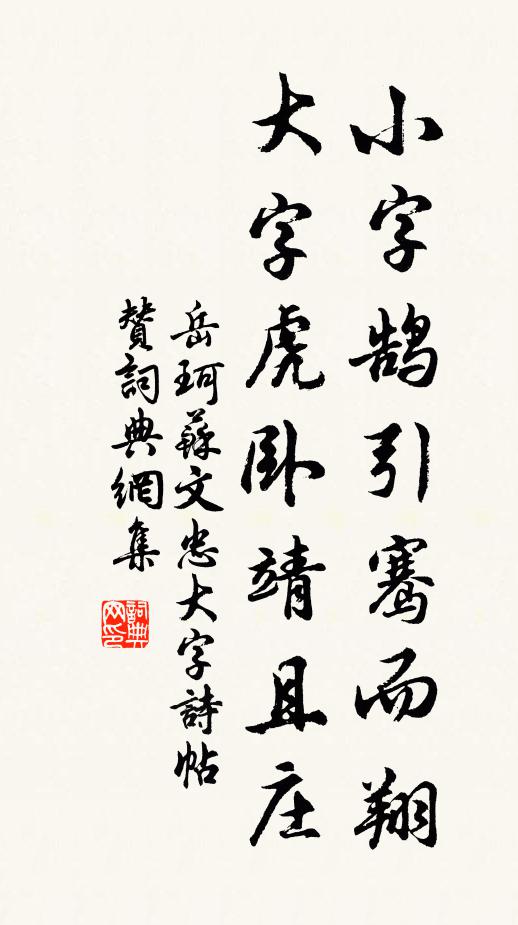 小字鹄引骞而翔
大字虎卧靖且庄
岳珂蘇文忠大字詩帖
賛詞典網集
詞典网印